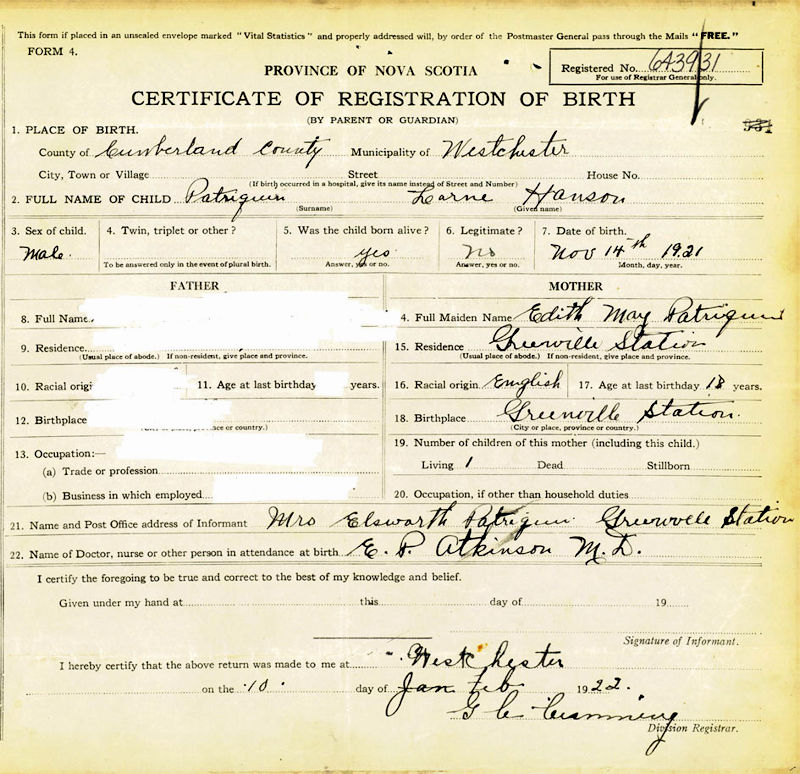 This form if placed in an unsealed envelope marked "Vital Statistics" and properly addressed will, by order of the Postmaster General pass through the Mails "FREE."
FORM 4.
Registered No. 643931
For use of Registrar General only.
PROVINCE OF NOVA SCOTIA
CERTIFICATE OF REGISTRATION OF BIRTH
(BY PARENT OR GUARDIAN)
1. PLACE OF BIRTH.
County of Cumberland County Municipality of Westchester
City, Town or Village Street House No.
(If birth occurred in a hospital, give its name instead of Street and Number)
2. FULL NAME OF CHILD Patriquin Lorne Hanson
(Surname) (Given name)
3. Sex of child. 4. Twin, triplet or other? 5. Was the child born alive? 6. Legitimate? 7. Date of birth.
Male. yes No Nov 14th 1921
To be answered only in the event of plural birth. Answer, yes or no. Answer, yes or no. Month, day, year.
FATHER MOTHER
8. Full Name 4. Full Maiden Name Edith May Patriquin
9. Residence 15. Residence Greenville Station
(Usual place of abode.) If non-resident, give place and province. (Usual place of abode.) If non-resident, give place and province.
10. Racial origi 11. Age at last birthday years. 16. Racial origin English 17. Age at last birthday 18 years.
12. Birthplace 18. Birthplace Greenville Station.
ce or country.) (City or place, province or country.)
13. Occupation:— 19. Number of children of this mother (including this child.)
(a) Trade or profession Living 1 Dead Stillborn
(b) Business in which employed 20. Occupation, if other than household duties
21. Name and Post Office address of Informant Mrs Elsworth Patriquin Greenville Station
22. Name of Doctor, nurse or other person in attendance at birth E. P. Atkinson M.D.
I certify the foregoing to be true and correct to the best of my knowledge and belief.
Given under my hand at this day of 19
Signature of Informant.
I hereby certify that the above return was made to me at Westchester
on the 10 day of Jan Feb 1922.
G C Cumming
Division Registrar.